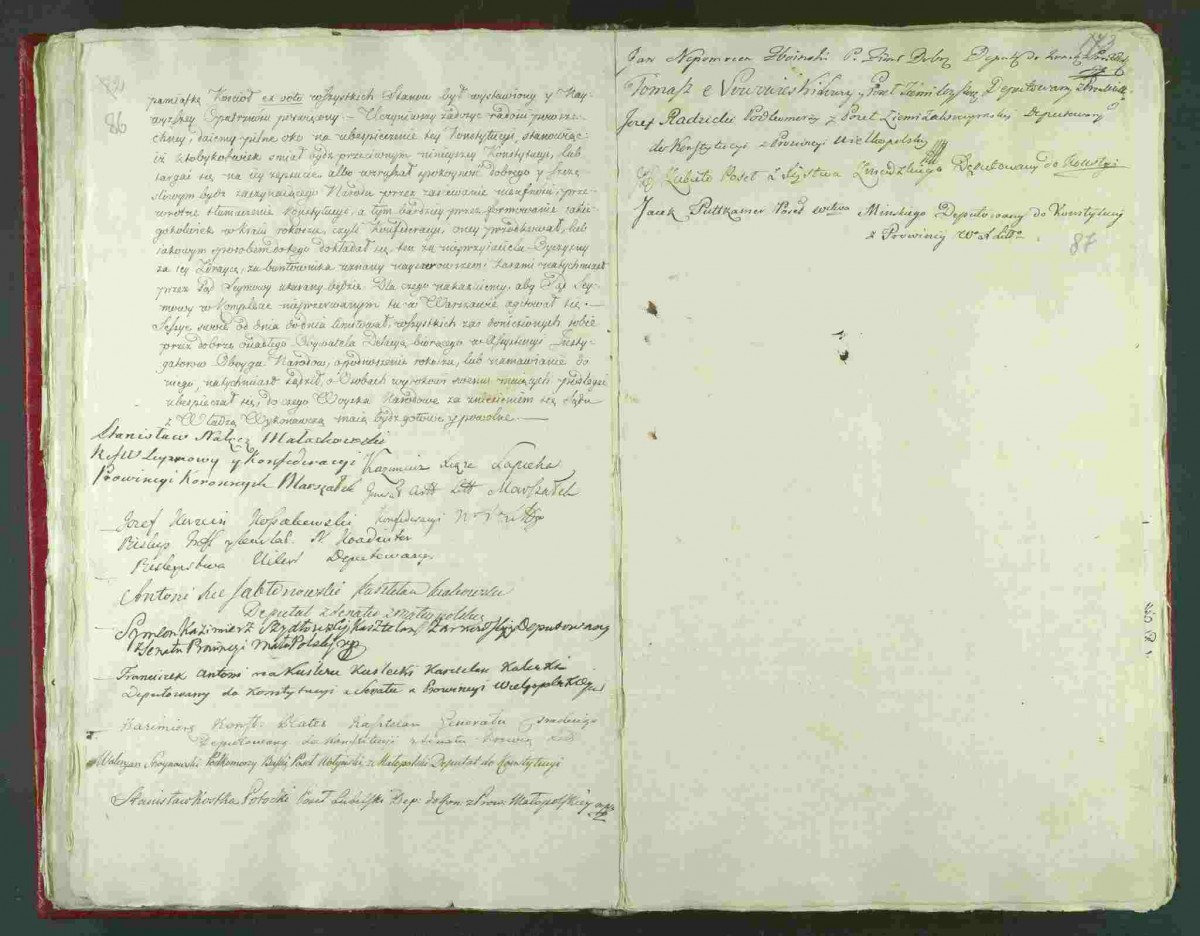 86
pamiątkę Kościół ex voto wszystkich Stanów był wystawiony y Nay-
wyższey Opatrzności poświęcony. — Uczyniwszy zadosyć radości powsze-
chney, daiemy pilne oko na ubespieczenie tey Konstytucyi, stanowiąc:
iż ktobykolwiek śmiał bydź przeciwnym ninieyszey Konstytucyi, lub
targać się na iey zepsucie albo wzruszał spokoyność dobrego y szczę-
śliwym bydź zaczynaiącego Narodu przez zasiewanie nieufności, prze-
wrotne tłumaczenie Konstytucyi, a tym bardziey przez formowanie iakie-
gokolwiek w kraiu rokoszu, czyli Konfederacyi, oney przodkował, lub
iakowym sposobem do tego dokładał się, ten za nieprzyiaciela Oyczyzny
za iey Zdraycę, za buntownika uznany naysurowszemi karami natychmiast
przez Sąd Seymowy ukarany będzie. Dla czego nakazuiemy, aby Sąd Sey-
mowy w komplecie nieprzerwanym tu w Warszawie agitował się.
Sessye swoie od dnia do dnia limitował, wszystkich zaś doniesionych sobie
przez dobrze osiadłego Obywatela Delacyą biorącego w Assystencyi Insty-
gatorów Oboyga Narodów, o podnoszenie rokoszu, lub namawianie do
niego, natychmiast sądził, o Osobach wyrokowi swemu maiących podlegać
ubespieczał się, do czego Woyska Narodowe za zniesieniem się Sądu
z Władzą Wykonawczą maią bydź gotowe y powolne. —
Stanisław Nałęcz Małachowski
Ref W Seymowy y Konfederacyi
Prowincyi Koronnych Marszałek
Kazimierz Xiąże Sapieha
Generał Artt Litt Marszałek
Konfederacyi W X Litt
Józef Korwin Kossakowski
Biskup Infl y Kurlan. N. Koadiutor
Biskupstwa Wileń Deputowany
Antoni Xże Jabłonowski Kasztelan Krakowski
Deputat z Senatu z Małeypolski
Symeon Kazimierz Szydłowski Kasztelan Żarnowski Deputowany
z Senatu Prowincyi Małopolskiey mp
Franciszek Antoni na Kwilczu Kwilecki Kasztelan Kaliski
Deputowany do Konstytucyi z Senatu z Prowincyi Wielgopolskiey
Kazimierz Konst: Plater Kasztelan Generału Trockiego
Deputowany do Konstitucyi z Senatu Prowin
Waleryan Stroynowski Podkomorzy Buski Poseł Wołyński z Małopolski Deputat do Konstytucyi
Stanisław Kostka Potocki Poseł Lubelski Dep: do Kon: z Prow: Małopolskiey
173
Jan Nepomucen Zboiński P. Ziemi Dobrz Deputat do Konsty
Tomasz Nowowieski Poseł Deputowany
Józef Radzicki Podkomorzy y Poseł Ziemi Zakroczymskiey Deputowany
do Konstytucyi z Prowincyi Wielkopolskiey
Zabiełło Poseł z Xięstwa Żmudzkiego Deputowany do Konstyt
Jacek Puttkamer Poseł Mińskiego Deputowany do Konstytucyi
z Prowincyi W° X Litt°
87